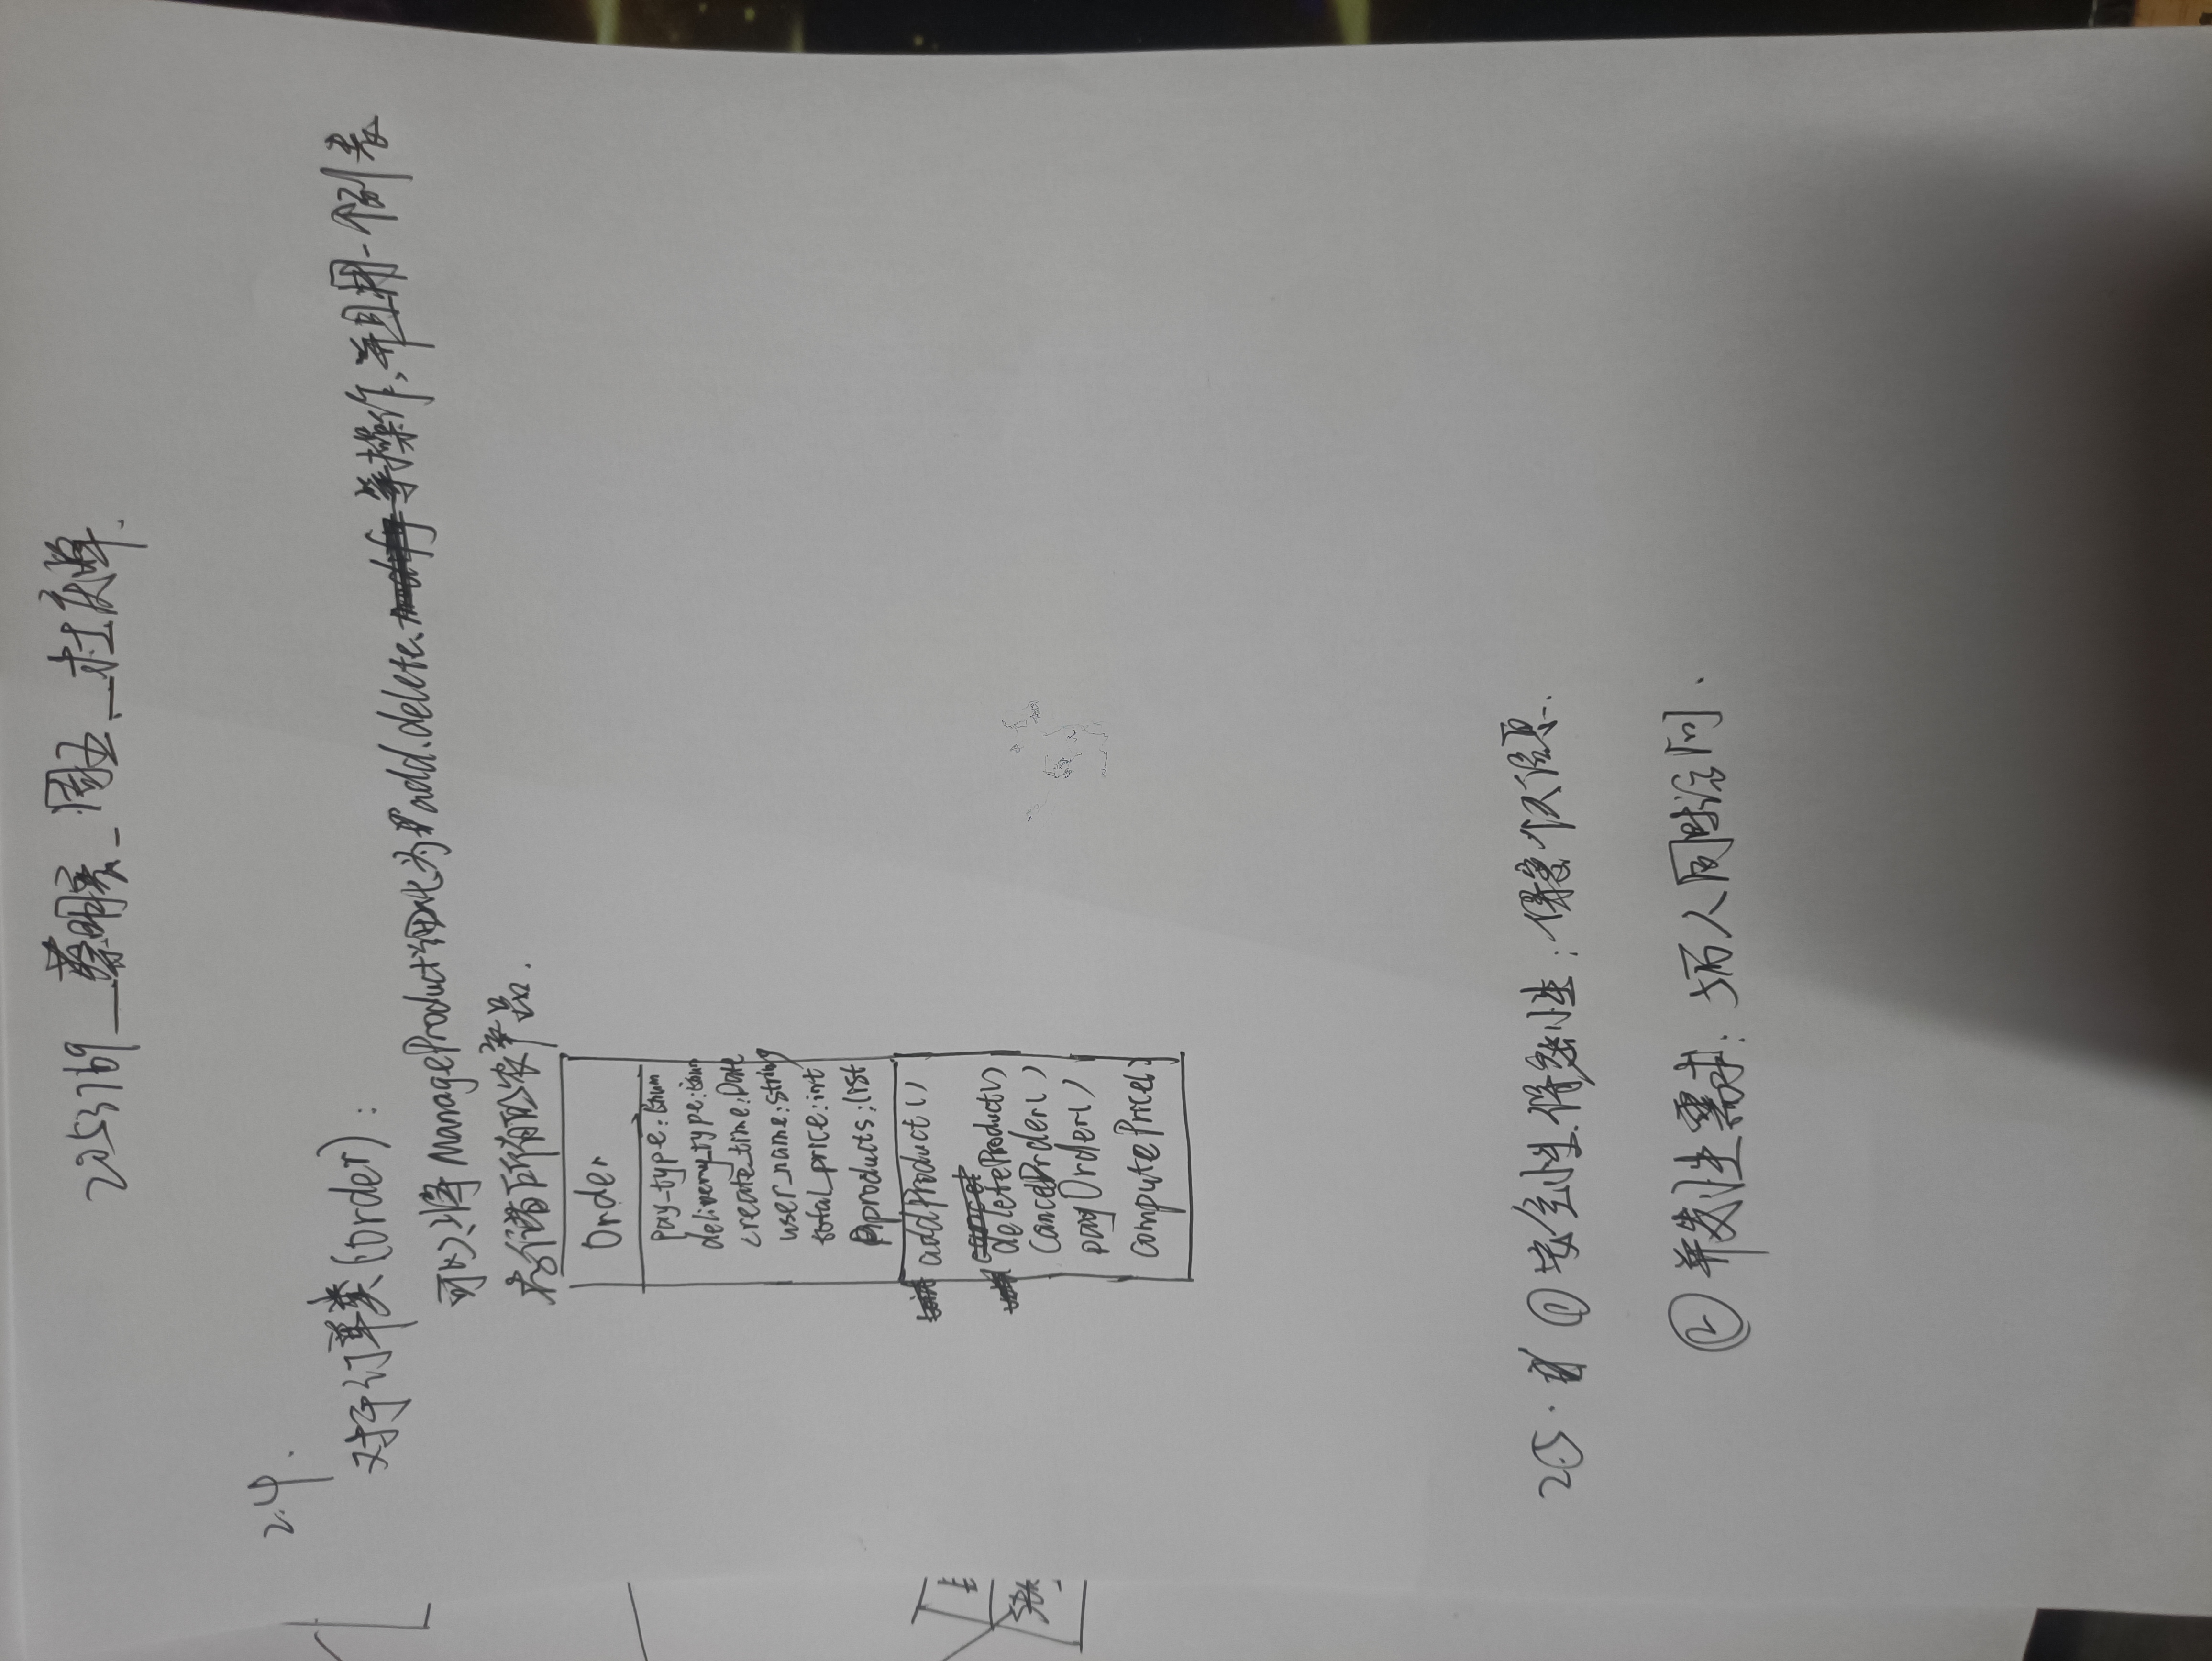 2253769_蔡明宏_周五_杜庆峰.
2.4.
对于订单类(Order):
可以将ManageProduct细化为add.delete.等操作,并且用一个列表
存储下所有的农产品.
Order
Pay-type:Enum
delivery_type:Enum
create_time:Date
user_name:String
total_price:int
products:list
addProduct()
deleteProduct()
CancelOrder()
payOrder()
computePrice()
2.5. ①安全性.保密性:保障个人信息.
②并发性需求:5万人同时访问.